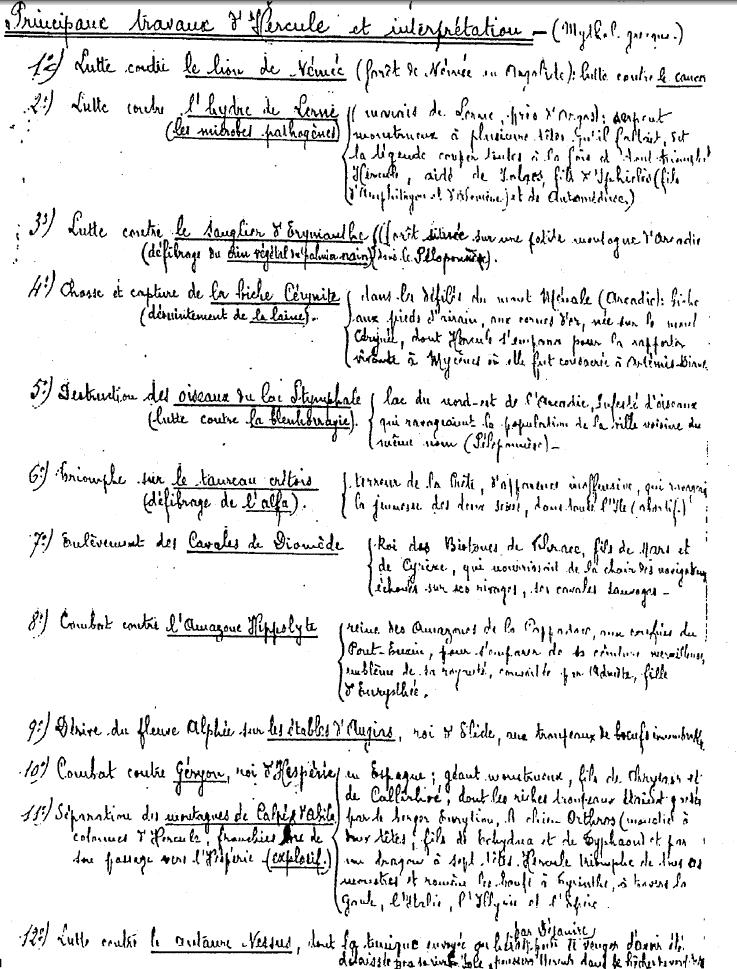 Principaux travaux d'Hercule et interprétation – (Mythol. grecque.)
1º) Lutte contre le lion de Némée (forêt de Némée en Argolide): lutte contre le cancer
2º) Lutte contre l'hydre de Lerne
(les microbes pathogènes)
(marais de Lerne, près d'Argos): serpent
monstrueux à plusieurs têtes qu'il fallait, dit
la légende couper toutes à la fois et dont triompha
Hercule, aidé de Iolas, fils d'Iphiclès (fils
d'Amphitryon et d'Alcmène) et de Automéduse.)
3º) Lutte contre le sanglier d'Erymanthe
(défibrage du crin végétal du palmier nain)
(forêt située sur une petite montagne d'Arcadie
dans le Péloponnèse).
4º) Chasse et capture de la biche Cérynite
(désuintement de la laine).
dans les défilés du mont Ménale (Arcadie): biche
aux pieds d'airain, aux cornes d'or, née sur le mont
Cérynée, dont Hercule s'empara pour la rapporter
vivante à Mycènes où elle fut consacrée à Artémis-Diane.
5º) Destruction des oiseaux du lac Stymphale
(lutte contre la blennorragie).
lac du nord-est de l'Arcadie, infesté d'oiseaux
qui ravageaient la population de la ville voisine du
même nom (Péloponnèse) –
6º) Triomphe sur le taureau crétois
(défibrage de l'alfa).
terreur de la Crète, d'apparence inoffensive, qui
la jeunesse des deux sexes, dans toute l'île (abortif.)
7º) Enlèvement des Cavales de Diomède
Roi des Bistones de Thrace, fils de Mars et
de Cyrène, qui nourrissait de la chair des navigateurs
échoués sur ses rivages, ses cavales sauvages –
8º) Combat contre l'Amazone Hippolyte
reine des Amazones de la Cappadoce, aux confins du
Pont-Euxin, pour s'emparer de sa ceinture merveilleuse,
emblème de sa royauté, convoitée par Admète, fille
d'Eurysthée.
9º) Dérive du fleuve Alphée sur les étables d'Augias, roi d'Elide, aux troupeaux de boeufs innombrables
10º) Combat contre Géryon, roi d'Hespérie
11º) Séparation des montagnes de Calpé et d'Abila
colonnes d'Hercule, franchies lors de
son passage vers l'Hespérie (explosif.)
en Espagne; géant monstrueux, fils de Chrysaor et
de Callirhoé, dont les riches troupeaux étaient gardés
par le berger Eurytion, le chien Orthros (molosse à
deux têtes, fils de Echydna et de Typhaon) et par
un dragon à sept têtes. Hercule triomphe de tous ces
monstres et ramène les boeufs à Tyrinthe, à travers la
Gaule, l'Italie, l'Illyrie et l'Epire.
12º) Lutte contre le centaure Nessus, dont la tunique envoyée par Déjanire